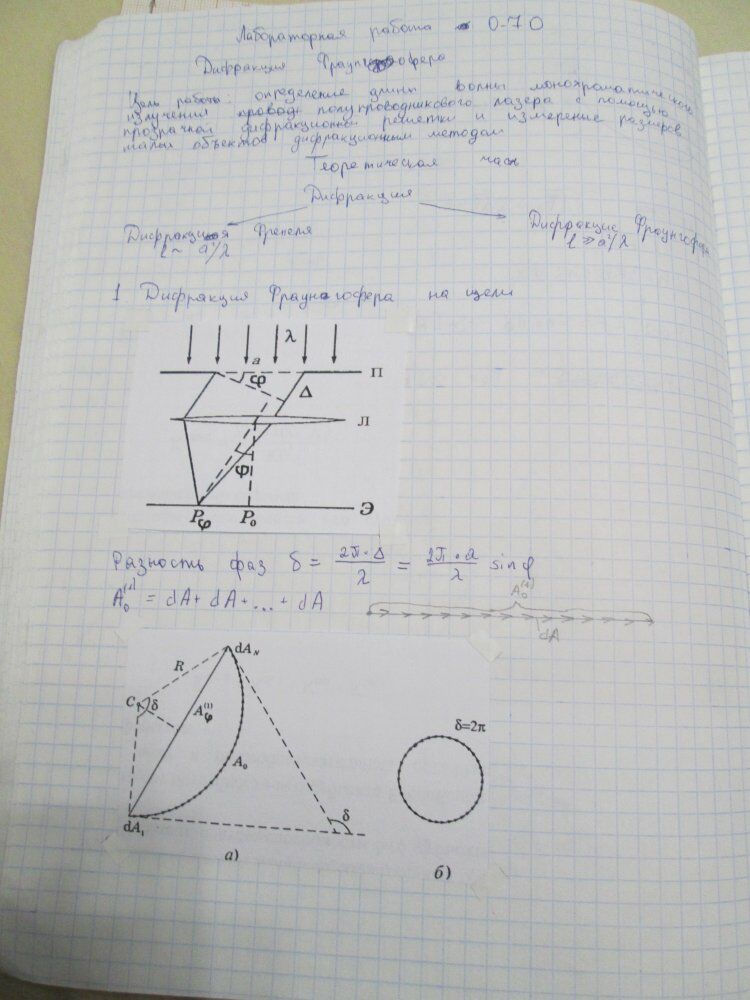 Лабораторная работа О-70
Дифракция Фраунгофера
Цель работы: определение длины волны монохроматического
излучения проводн полупроводникового лазера с помощью
прозрачной дифракционной решетки и измерение размеров
малых объектов дифракционным методом
Теоретическая часть
Дифракция
Дифракция Френеля
l ~ a²/λ
Дифракция Фраунгофера
l ≫ a²/λ
1 Дифракция Фраунгофера на щели
λ
a
φ
Δ
П
Л
φ
Pφ P₀ Э
Разность фаз δ = 2π·Δ/λ = 2π·a/λ sin φ
A₀⁽¹⁾ = dA + dA + ... + dA
A₀⁽¹⁾
dA
dA_N
R
C δ
Aφ⁽¹⁾
A₀
dA₁
δ
а)
δ=2π
б)